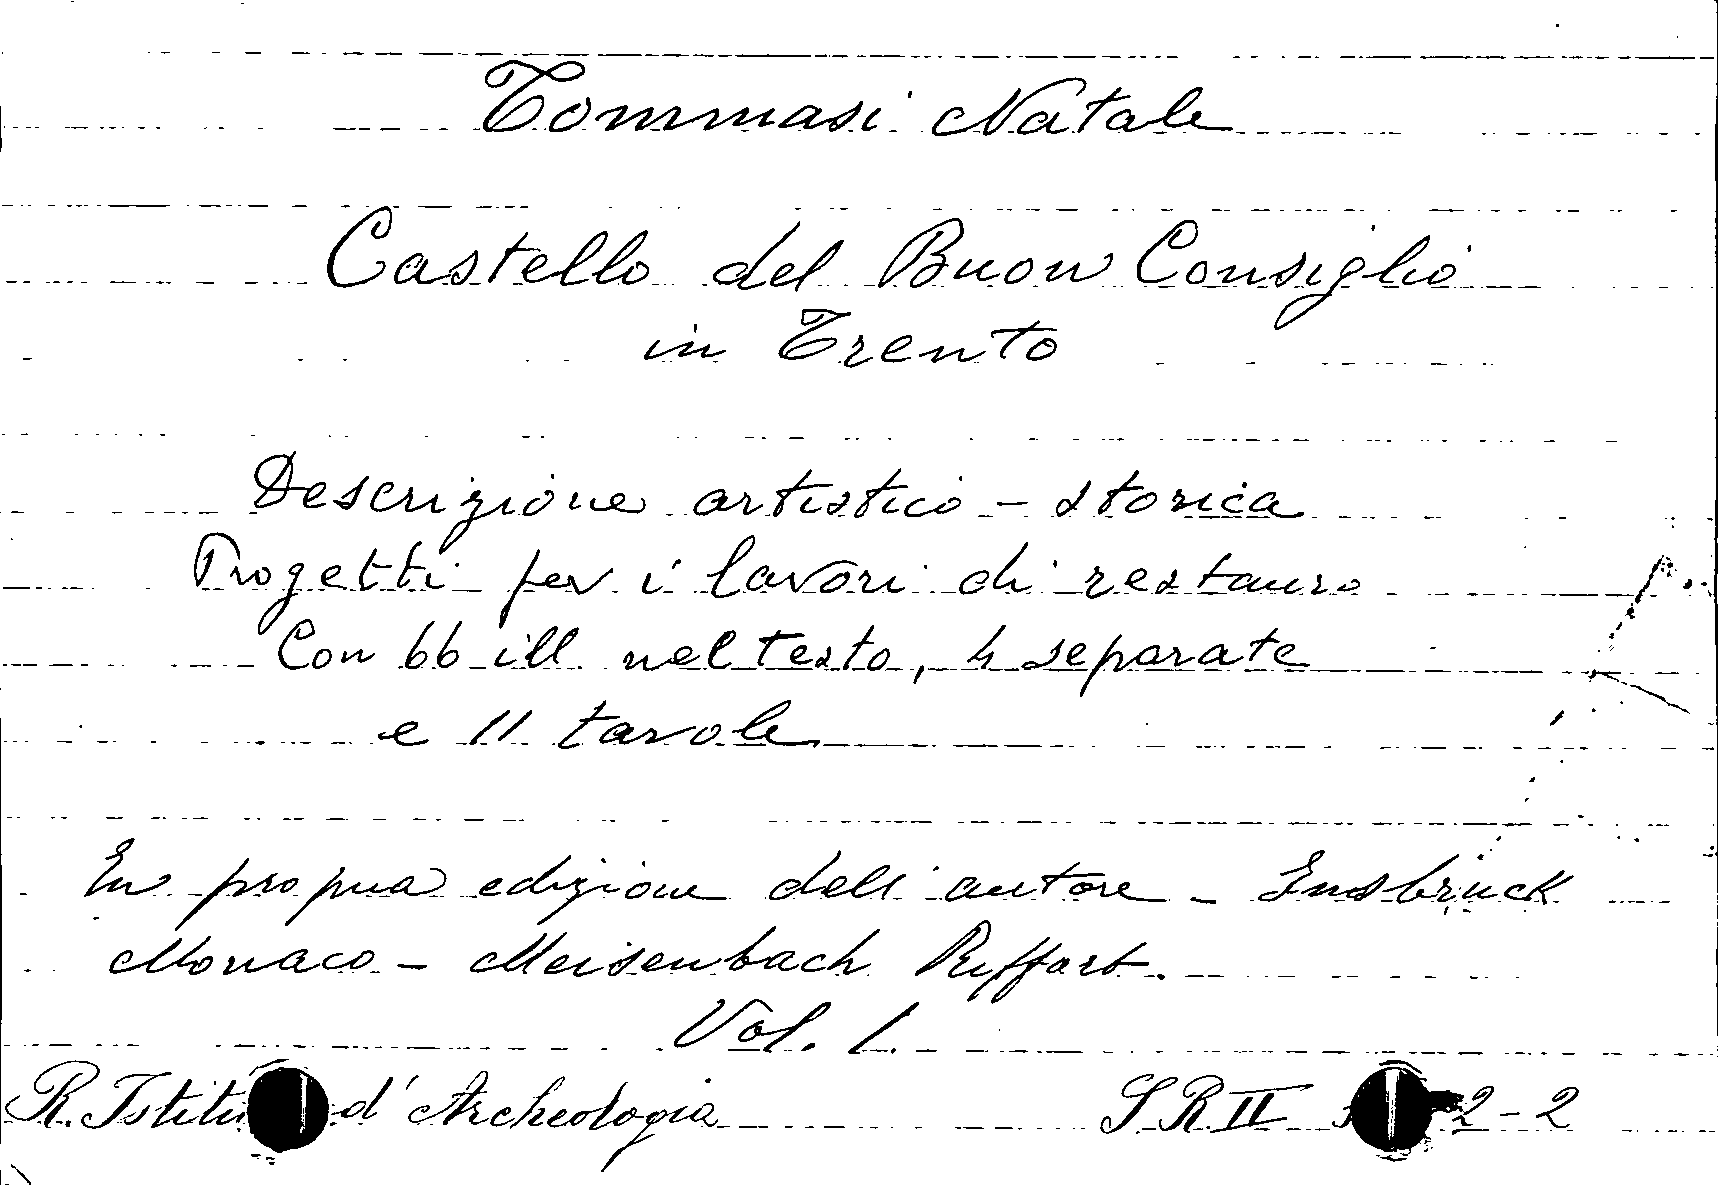 Tommasi Natale
Castello del Buon Consiglio
in Trento
Descrizione artistico - storica
Progetti per i lavori di restauro
Con 66 ill nel testo, 4 separate
e 11 tavole
In propria edizione dell'autore - Insbruck
Monaco - Meisenbach Riffart.
Vol. 1.
R. Istitu d'Archeologia S R II 2-2